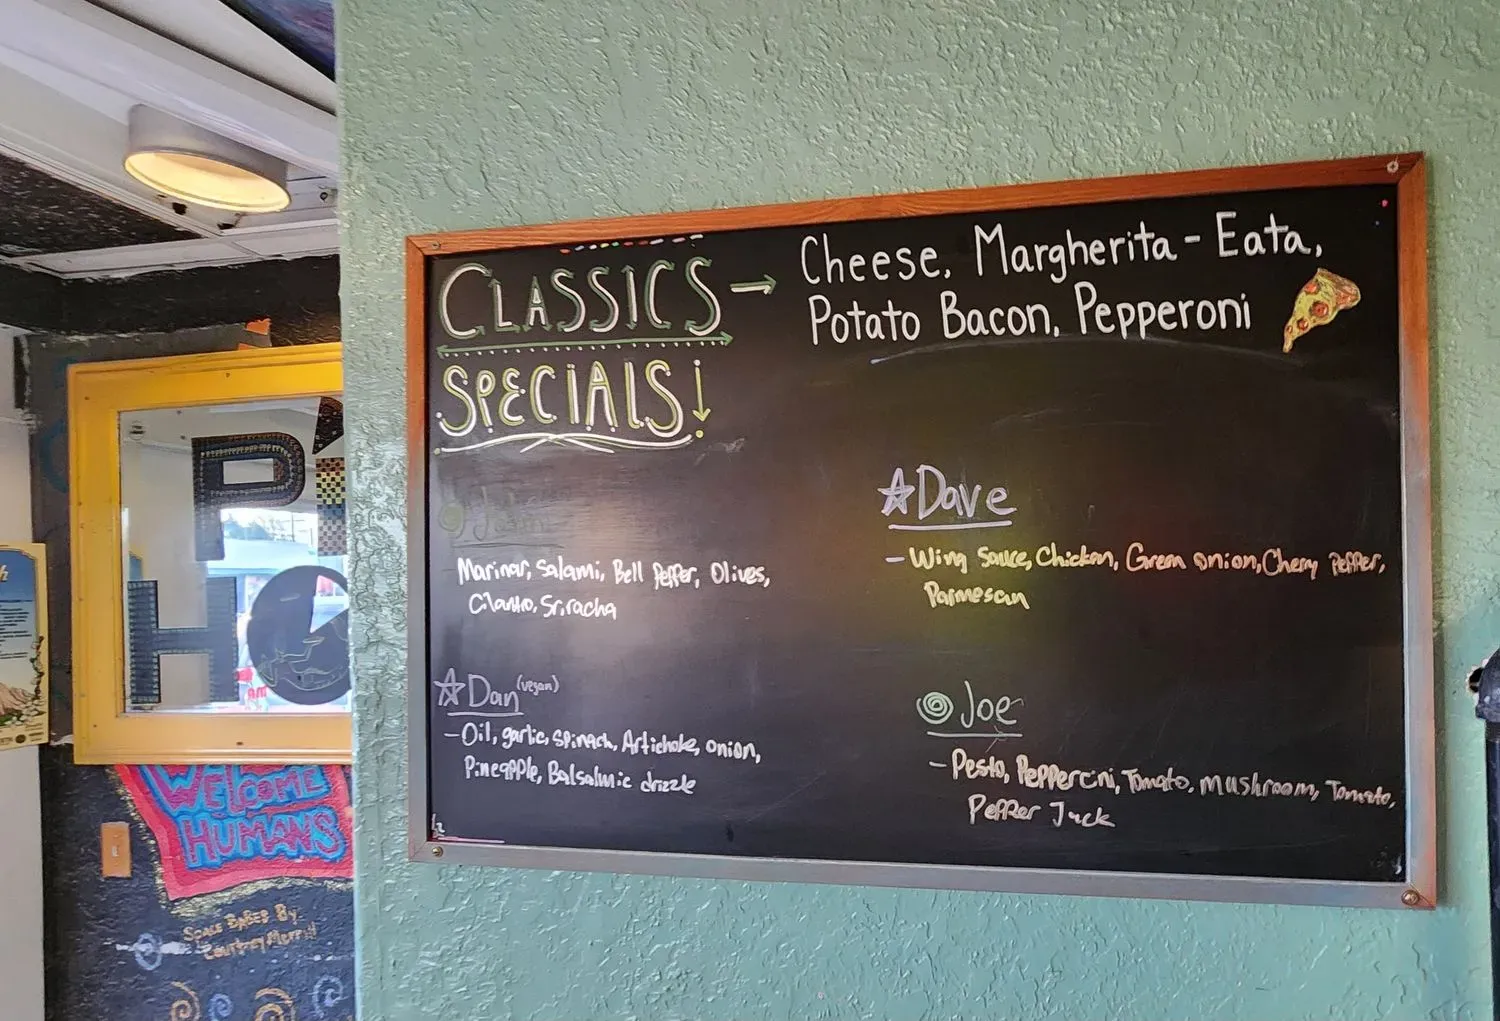 CLASSICS → Cheese, Margherita - Eata,
Potato Bacon, Pepperoni
SPECIALS!
Marinar, Salami, Bell Pepper, Olives,
Cilantro, Sriracha
Dave
- Wing Sauce, Chicken, Green onion, Cherry Pepper,
Parmesan
Dan (vegan)
- Oil, garlic, spinach, Artichoke, onion,
Pineapple, Balsalmic drizzle
Joe
- Pesto, Peppercini, Tomato, mushroom, Tomato,
Pepper Jack
WELCOME
HUMANS
By
Courtney Merrill